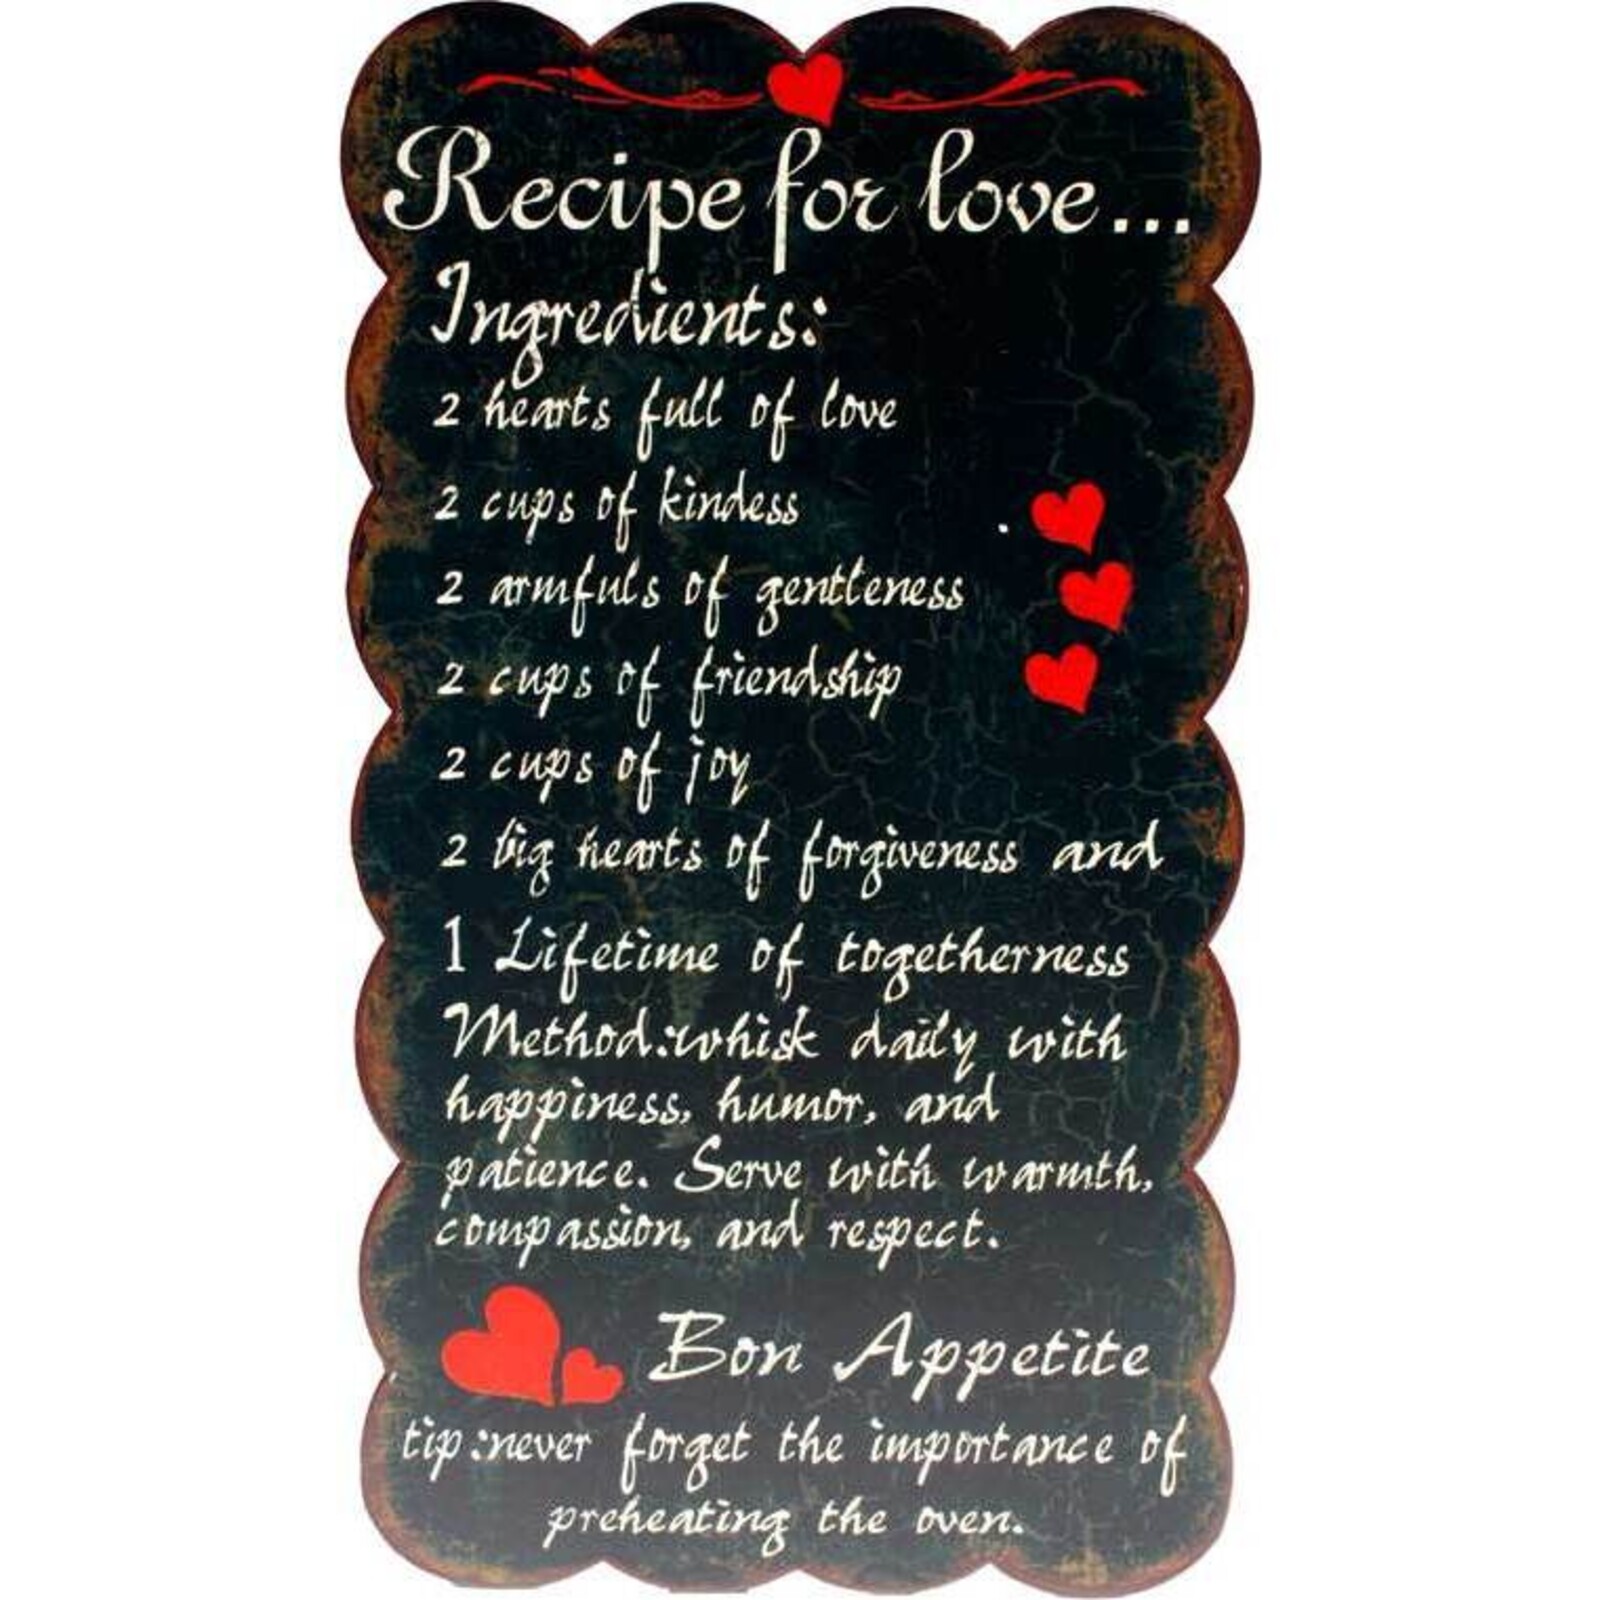 Recipe for love...
Ingredients:
2 hearts full of love
2 cups of kindess
2 armfuls of gentleness
2 cups of friendship
2 cups of joy
2 big hearts of forgiveness and
1 Lifetime of togetherness
Method:whisk daily with
happiness, humor, and
patience. Serve with warmth,
compassion, and respect.
Bon Appetite
tip:never forget the importance of
preheating the oven.